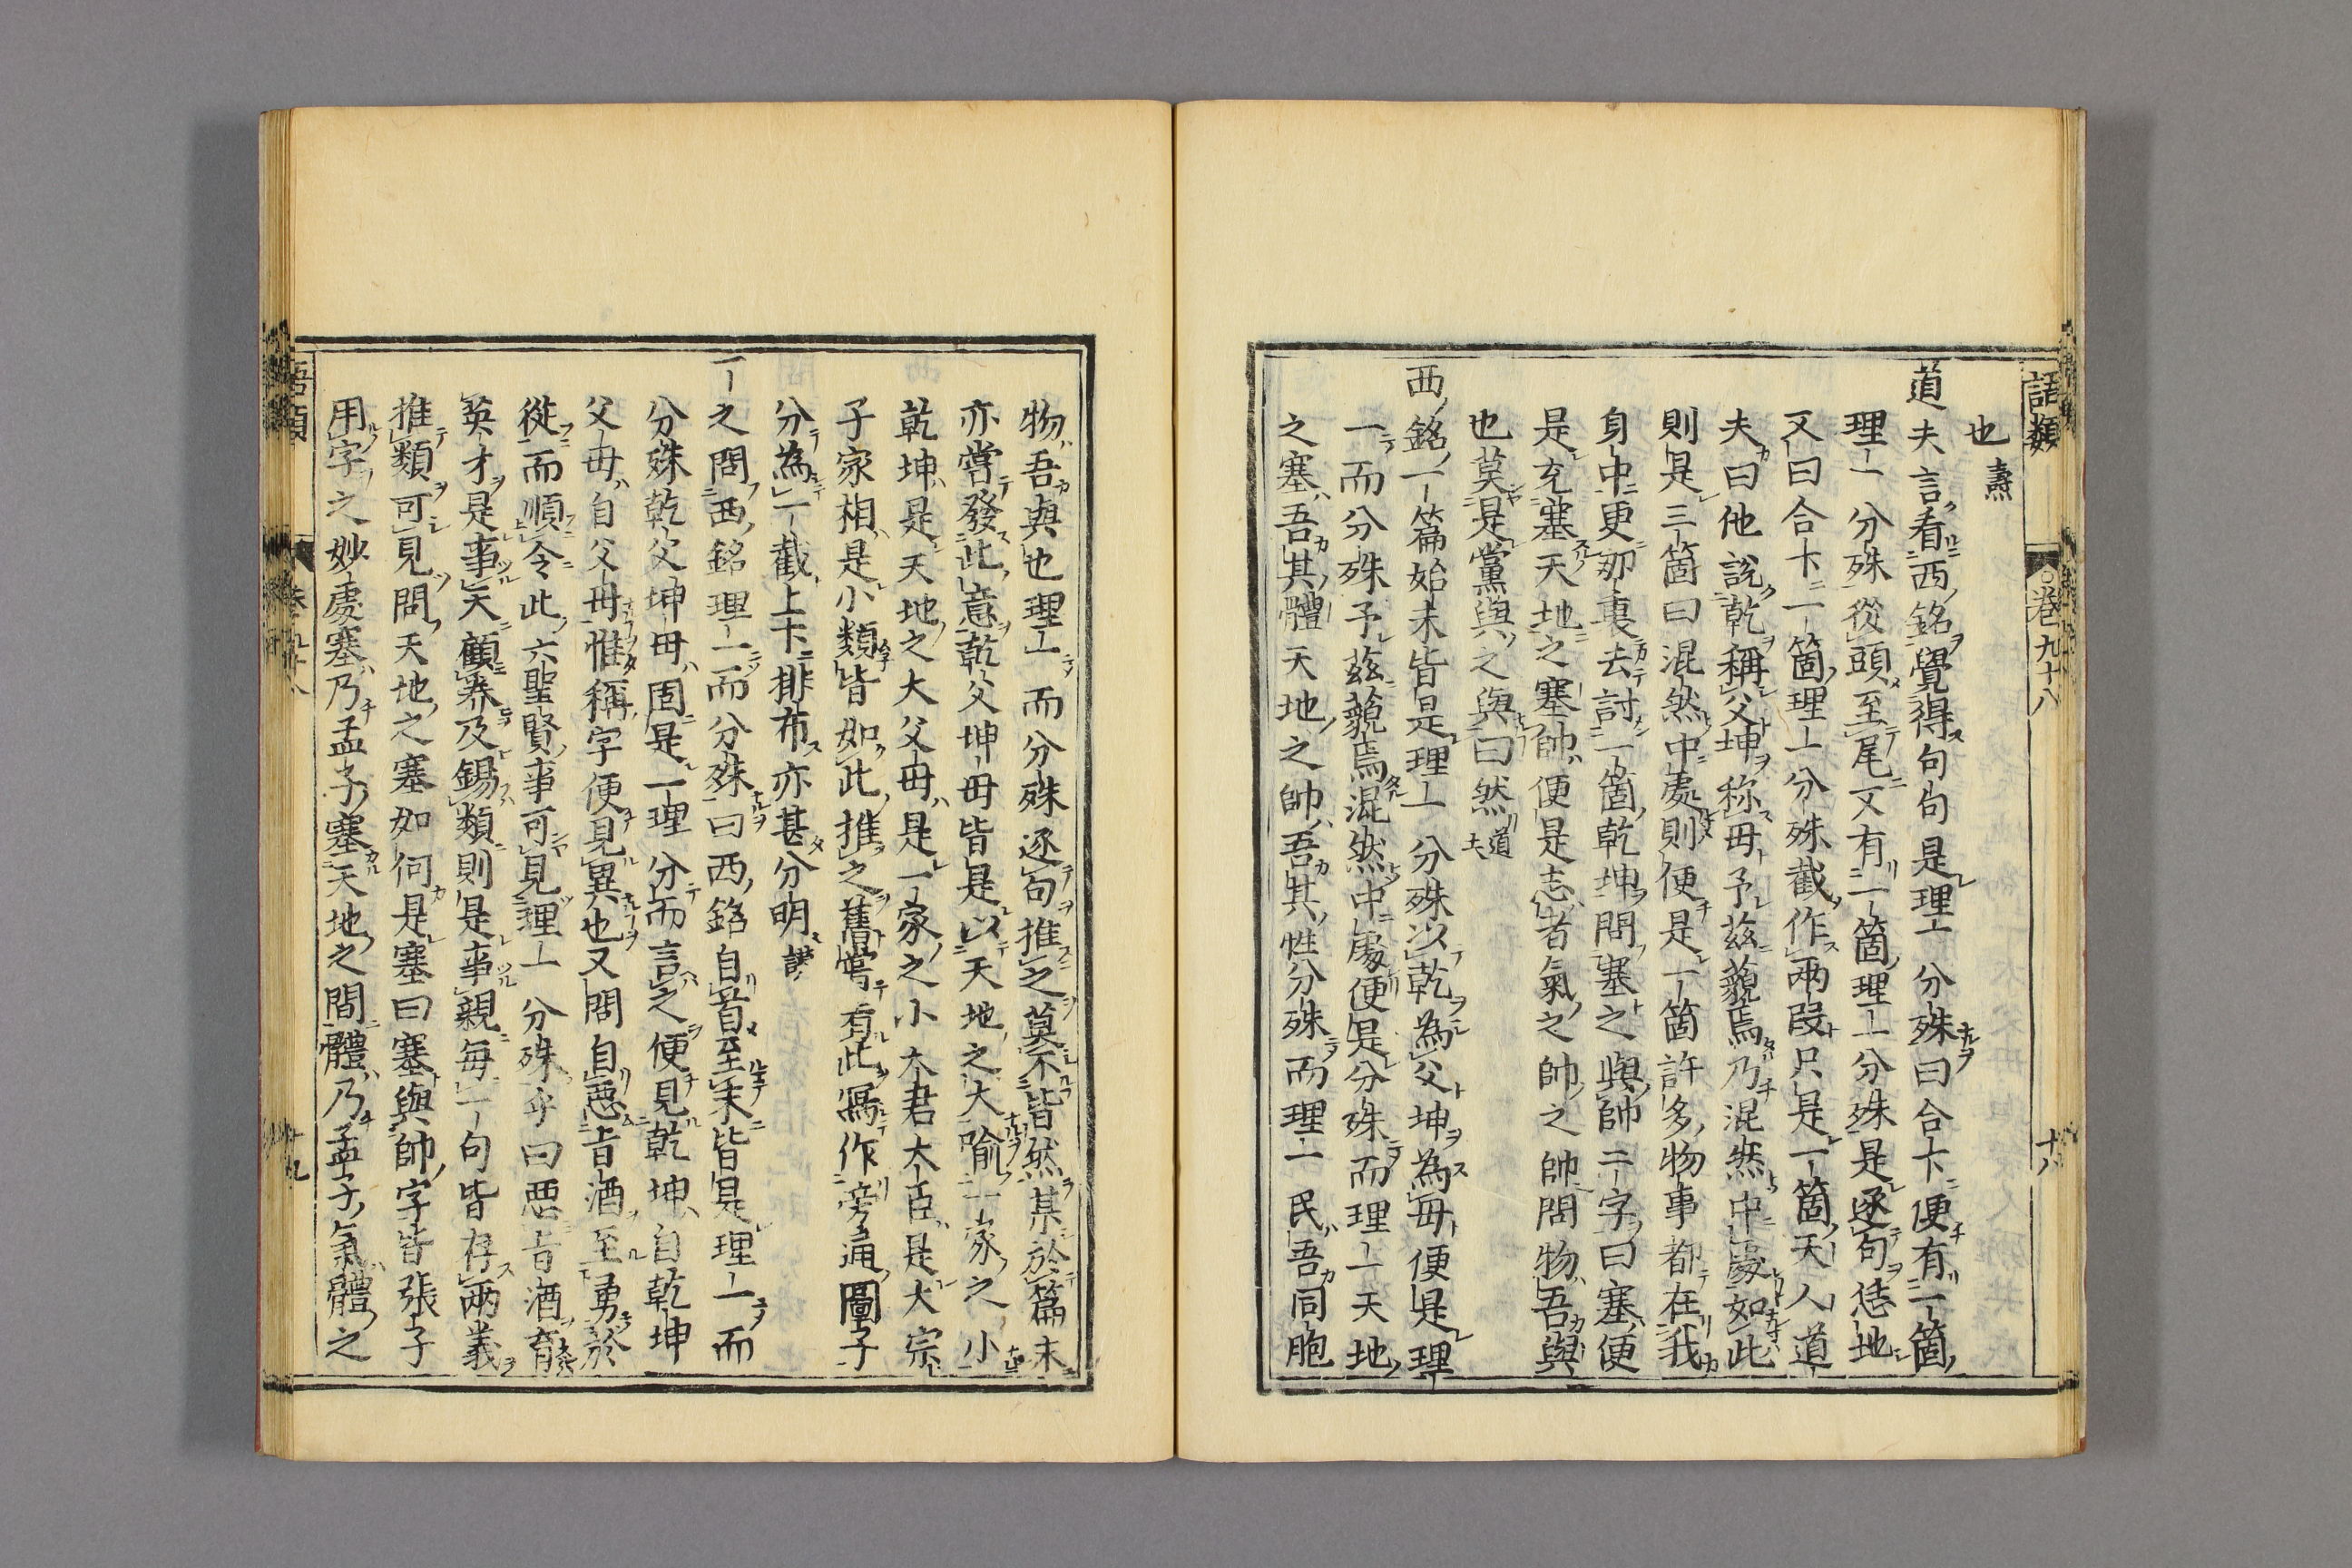 語類
卷九十八
十八
也 燾
道夫言看西銘覺得句句是理一分殊曰合下便有一箇
理一分殊從頭至尾又有一箇理一分殊是逐句恁地
又曰合下一箇理一分殊截作兩段只是一箇天人道
夫曰他說乾稱父坤称母予茲藐焉乃混然中處如此
則是三箇曰混然中處則便是一箇許多物事都在我
身中更那裏去討一箇乾坤問塞之與帥二字曰塞便
是充塞天地之塞帥便是志者氣之帥之帥問物吾與
也莫是黨與之與曰然 道夫
西銘一篇始末皆是理一分殊以乾為父坤為母便是理
一而分殊予茲藐焉混然中處便是分殊而理一天地
之塞吾其體天地之帥吾其性分殊而理一民吾同胞
物吾與也理一而分殊逐句推之莫不皆然某於篇末
亦嘗發此意乾父坤母皆是以天地之大喻一家之小
乾坤是天地之大父母是一家之小大君大臣是大宗
子家相是小類皆如此推之舊嘗有此寫作旁通圖子
分為一截上下排布亦甚分明 謨
一之問西銘理一而分殊曰西銘自首至末皆是理一而
分殊乾父坤母固是一理分而言之便見乾坤自乾坤
父母自父母惟稱字便見異也又問自惡旨酒至勇於
從而順令此六聖賢事可見理一分殊乎曰惡旨酒育
英才是事天顧養及錫類則是事親每一句皆存兩義
推類可見問天地之塞如何是塞曰塞與帥字皆張子
用字之妙處塞乃孟子塞天地之間體乃孟子氣體之
語類
十九